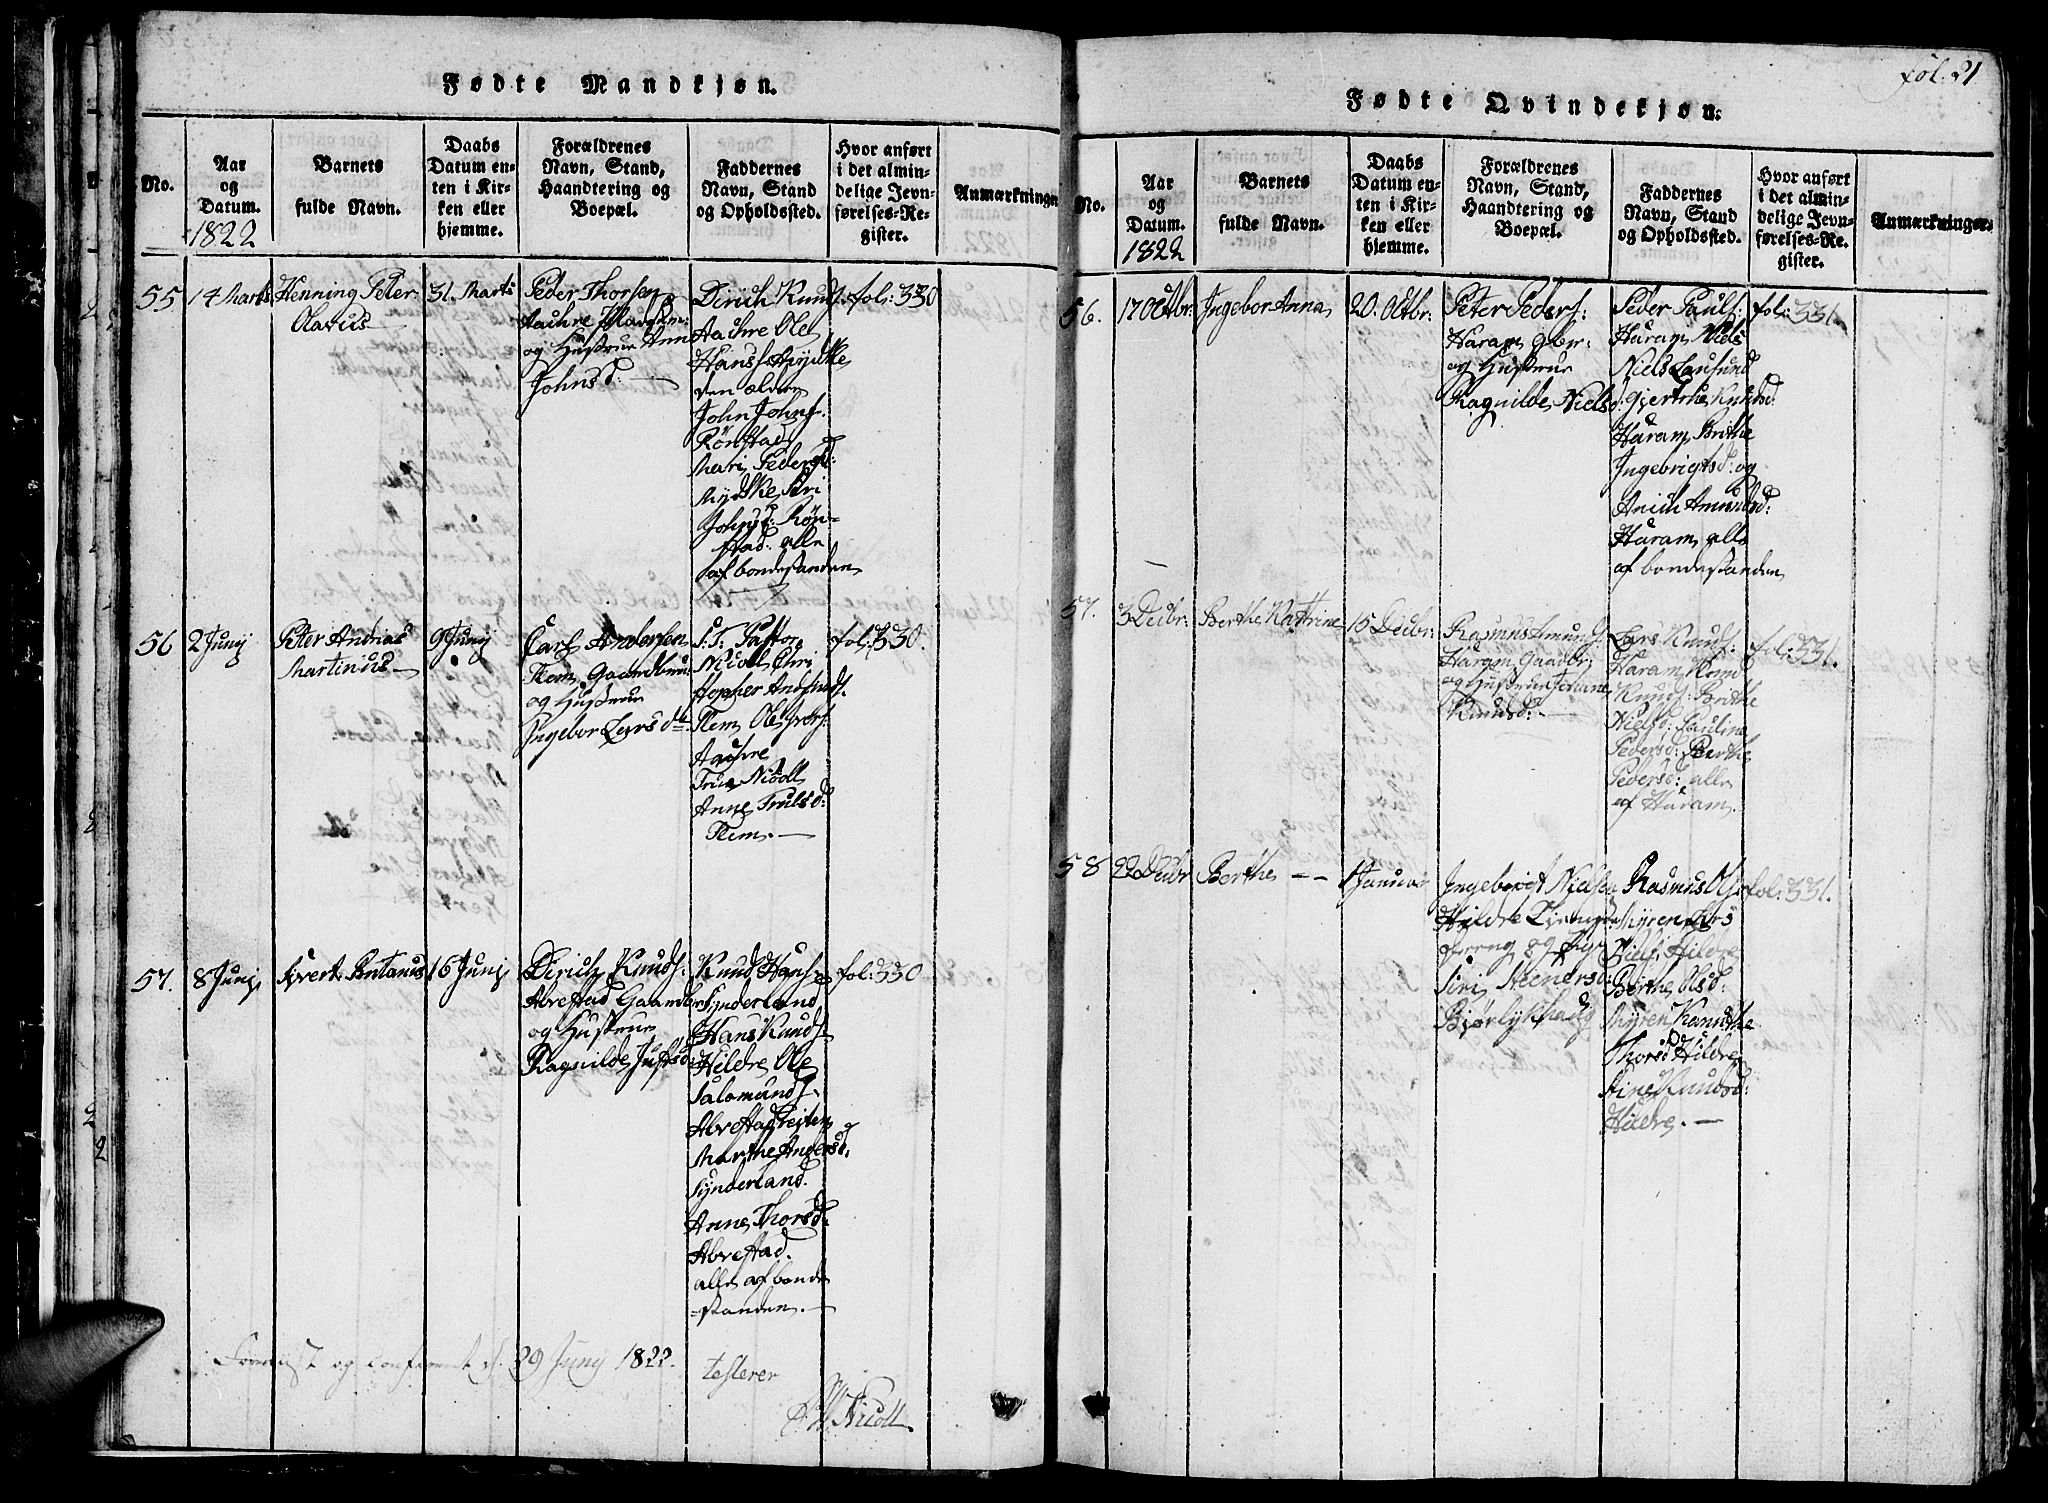 Fødte Mandkjøn.
No.
Aar
og
Datum.
1822
Barnets
fulde Navn.
Daabs
Datum en-
ten i Kir-
ken eller
hjemme.
Forældrenes
Navn, Stand,
Haandtering og
Boepæl.
Faddernes
Navn, Stand
og Opholdssted.
Hvor anført
i det almin-
delige Jevn-
førelses-Re-
gister.
Anmærkninger
55
14 Marts
Henning Peter
Olavus
31. Marts
Peder Thorsen
og Hustrue Ann
Johnsd:
Dirich Knuds:
Hauhre Ole
Hans
den ældre
John Johns.
Rönstad
Mari Pedersd:
Siri
Johnsd: Rön-
stad. alle
af bondestanden
fol: 330
56
2 Junij
Peter Andreas
Martinus
9 Junij
Carl Andersen
Flem, Gaardbrui:
og Hustrue
Ingebor Larsd
S. T. Pastor
Nicoll, Chri
Flem, Ole Ivers:
Hauhre
Frue Nicoll
Anne Trulsd:
Flem.
fol: 330.
57.
8 Junij
Syvert Antanus
16 Junij
Dirich Knuds:
Abrestad Gaardbr
og Hustrue
Ragnilde Justsd:
Knud Hans
Synderland
Hans Knuds
Hildre Ole
Salamunds.
Marthe Andersd:
Synderland.
Anne Thorsd:
Abrestad.
alle af bonde
-standen.
fol: 330
og Confereret d. 29 Junij 1822.
testerer
Nicoll
fol. 21
Fødte Qvindekjøn.
No.
Aar
og
Datum.
1822
Barnets
fulde Navn.
Daabs
Datum en-
ten i Kir-
ken eller
hjemme.
Forældrenes
Navn, Stand,
Haandtering og
Boepæl.
Faddernes
Navn, Stand
og Opholdssted.
Hvor anført
i det almin-
delige Jevn-
førelses-Re-
gister.
Anmærkninger.
56.
17 Octbr:
Ingebor Anna
20. Octbr:
Peter Peders:
Haram, Gbr:
og Hustrue
Ragnilde Nielsd:
Peder Pauls:
Haram, Niels
Niels: Lausund
Gjertrue Knudsd:
Haram, Brithe
Ingebrigtsd: og
Haram, alle
af bondestanden
fol: 331.
57.
3 Decbr:
Berthe Kattrine
15 Decbr:
Rasmus Amunds
Haram, Gaardbr:
og Hustrue
Knudsd:
Lars Knuds:
Haram, Knud
Knuds: Brithe
Nielsd: Pauline
Pedersd: Berthe
Pedersd: alle
af Haram.
fol: 331.
58
22 Decbr
Berthe - -
1 Januar
Ingebrigt Nielsen
Hildre
og Pige
Siri Steinersd:
Rasmus Ols:
Myren, Lars
Niels: Hildre
Berthe Olsd:
Myren
Thorsd: Hildre
Knudsd:
Hildre.
fol: 331.